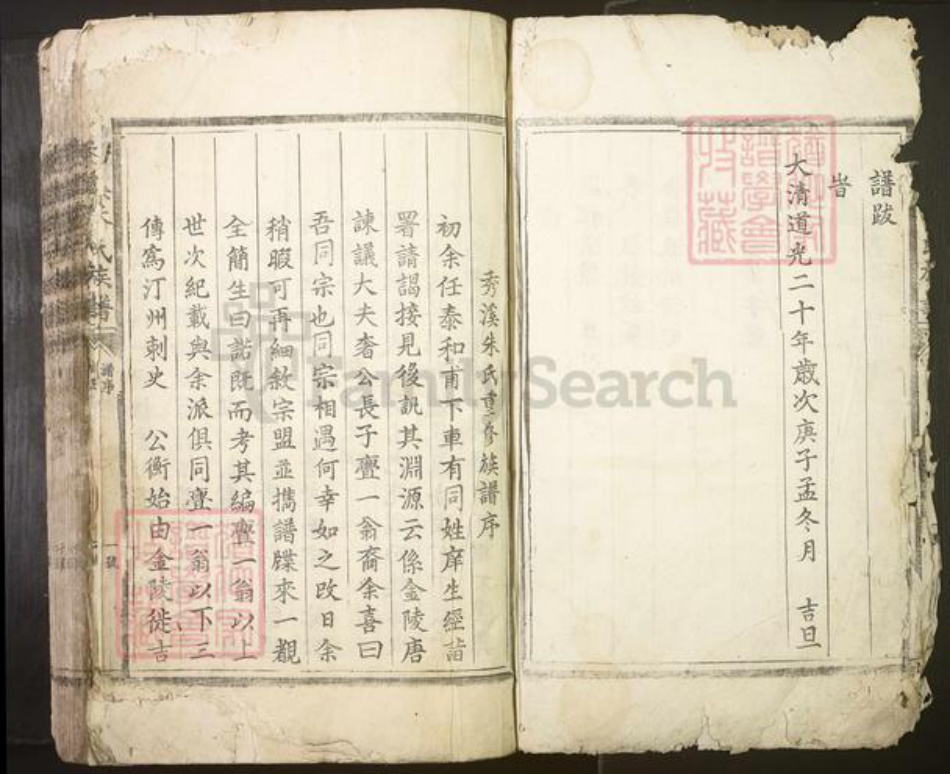 譜跋
旹
大清道光二十年歲次庚子孟冬月 吉旦
秀溪朱氏重修族譜序
初余任泰和甫下車有同姓庠生經詣
署請謁接見後訊其淵源云係金陵唐
諫議大夫奢公長子亹一翁裔余喜曰
吾同宗也同宗相遇何幸如之改日余
稍暇可再細敘宗盟並攜譜牒來一覩
全簡生曰諾既而考其編亹一翁以上
世次紀載與余派俱同亹一翁以下三
傳爲汀州刺史 公衡始由金陵徙吉
氏族譜
譜序
一號
FamilySearch